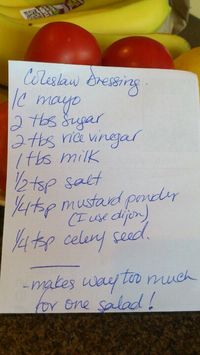 Coleslaw Dressing.
1C mayo
2 tbs sugar
2 tbs rice vinegar
1 tbs milk
1/2 tsp salt
1/4 tsp mustard powder
(I use dijon)
1/4 tsp celery seed.
-makes way too much
for one salad!